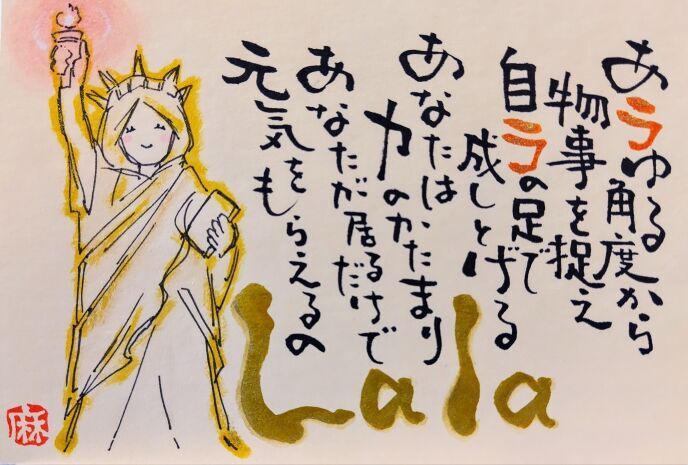 あラゆる角度から
物事を捉え
自ラの足で
成しとげる
あなたは
力のかたまり
あなたが居るだけで
元気をもらえるの
Lala
麻